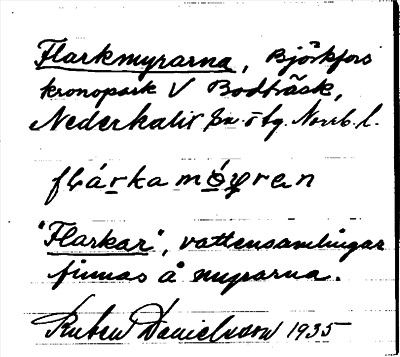 Flarkmyrarna, Björkfors
kronopark V Bodträsk,
Nederkalix sn. o tg. Norrb. l.
flárka mǿyren
"Flarkar", vattensamlingar
finnas å myrarna.
Ruben Danielsson 1935